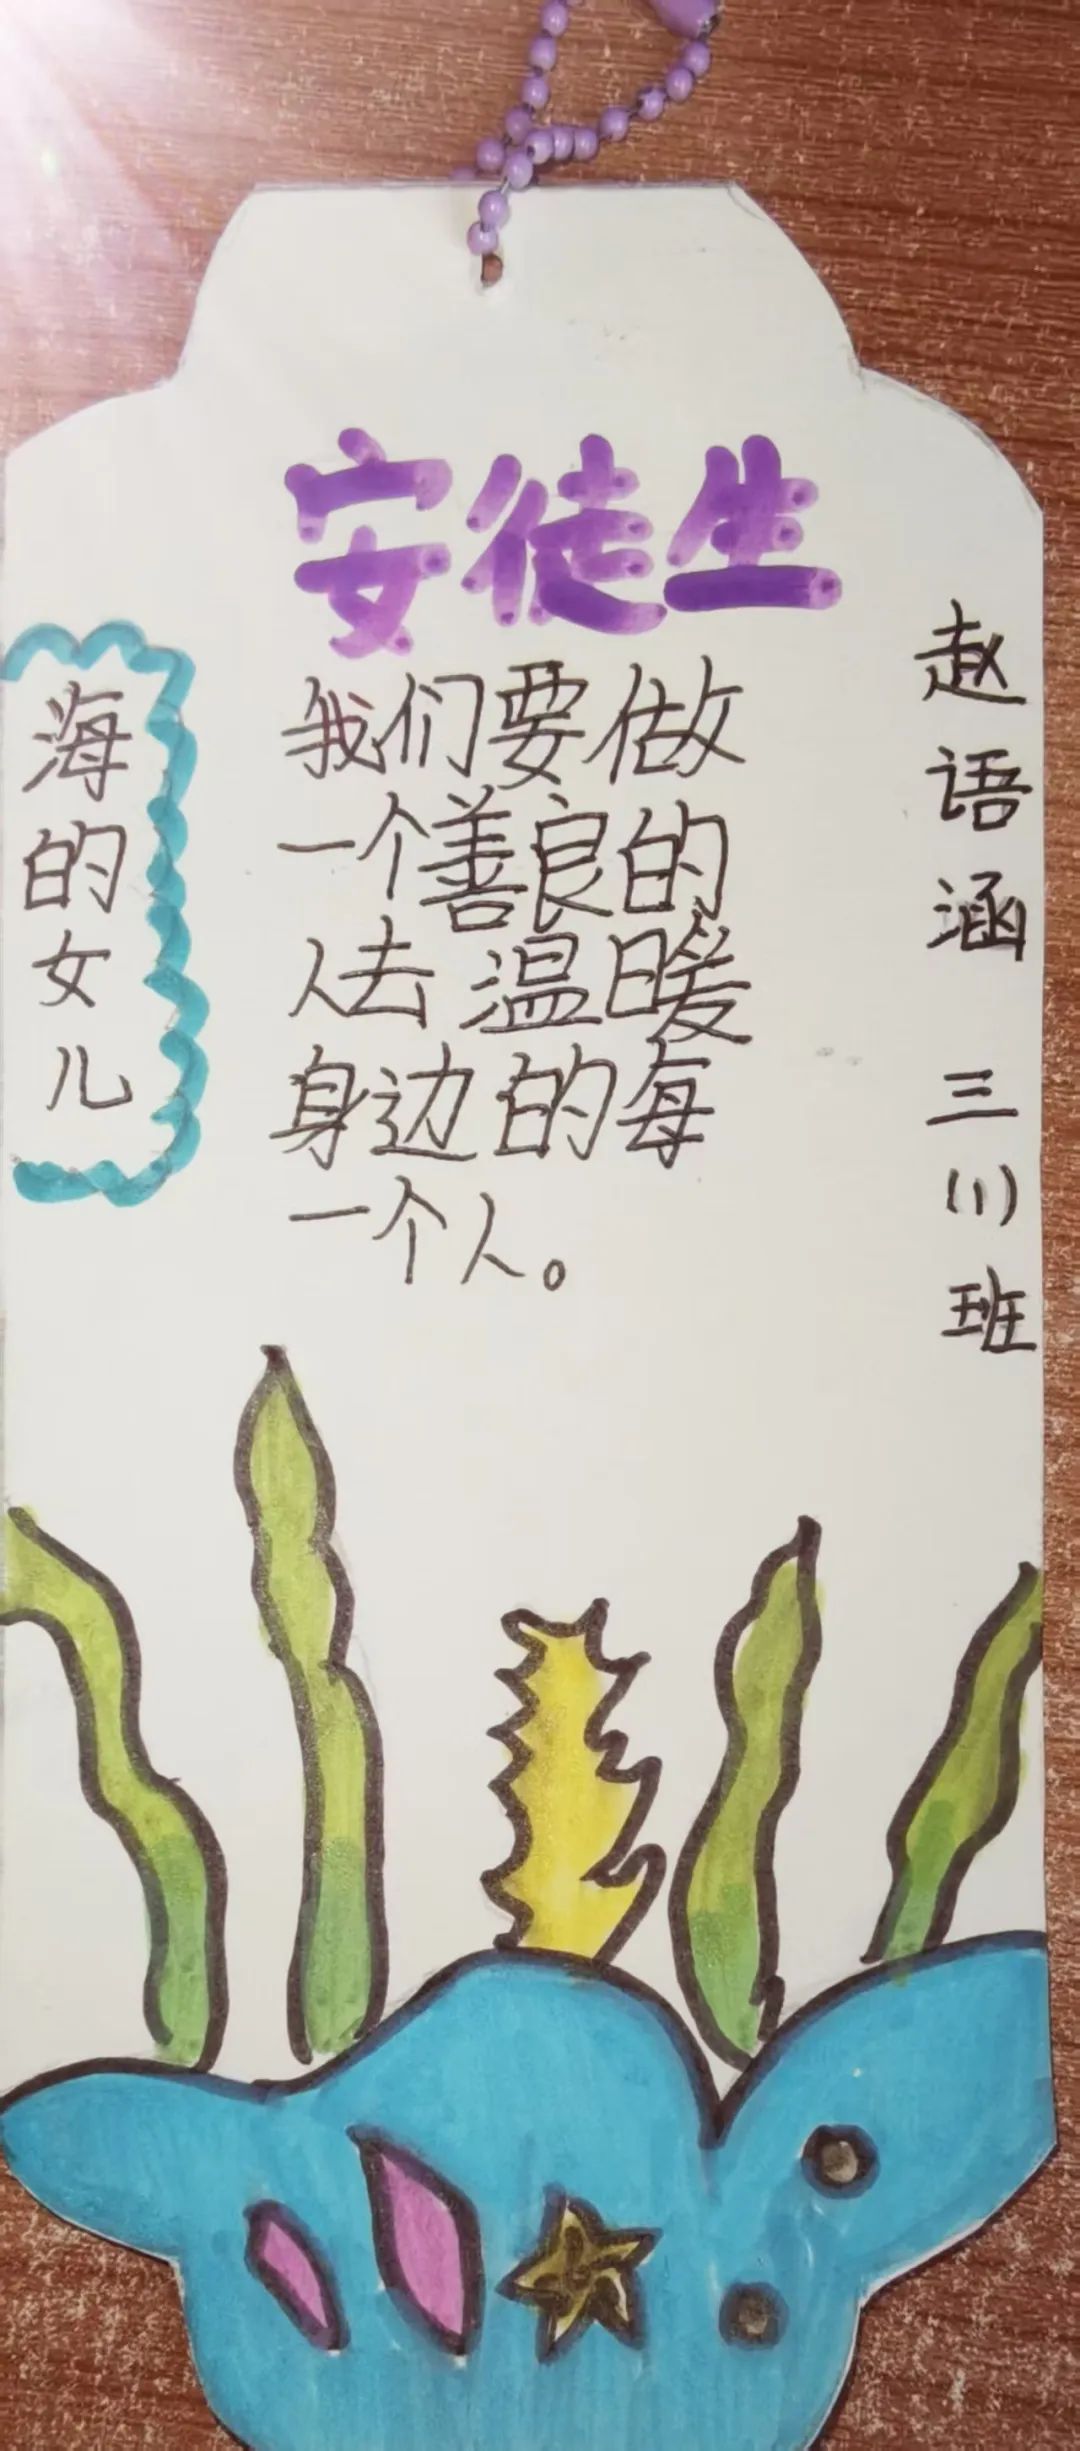 安徒生
海的女儿
我们要做
一个善良的
人去温暖
身边的每
一个人。
赵语涵 三(1)班